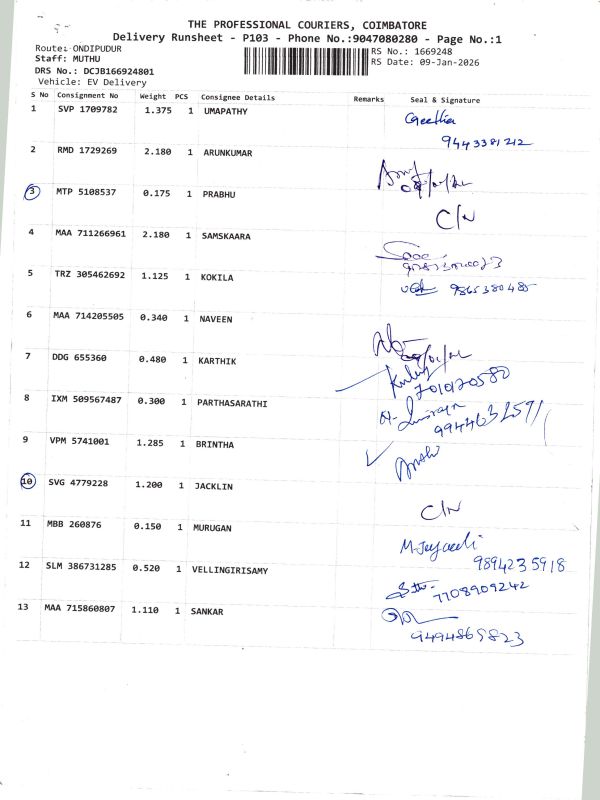 THE PROFESSIONAL COURIERS, COIMBATORE
Delivery Runsheet - P103 - Phone No.:9047080280 - Page No.:1
Route: ONDIPUDUR
RS No.: 1669248
Staff: MUTHU
RS Date: 09-Jan-2026
DRS No.: DCJB166924801
Vehicle: EV Delivery
S No Consignment No Weight PCS Consignee Details Remarks Seal & Signature
1 SVP 1709782 1.375 1 UMAPATHY Geetha
9443381212
2 RMD 1729269 2.180 1 ARUNKUMAR
3 MTP 5108537 0.175 1 PRABHU
C/N
4 MAA 711266961 2.180 1 SAMSKAARA
5 TRZ 305462692 1.125 1 KOKILA 9865380485
6 MAA 714205505 0.340 1 NAVEEN
7 DDG 655360 0.480 1 KARTHIK
7010120580
8 IXM 509567487 0.300 1 PARTHASARATHI
9 VPM 5741001 1.285 1 BRINTHA
10 SVG 4779228 1.200 1 JACKLIN
C/N
11 MBB 260876 0.150 1 MURUGAN
9894235918
12 SLM 386731285 0.520 1 VELLINGIRISAMY
7708909242
13 MAA 715860807 1.110 1 SANKAR
9494865823